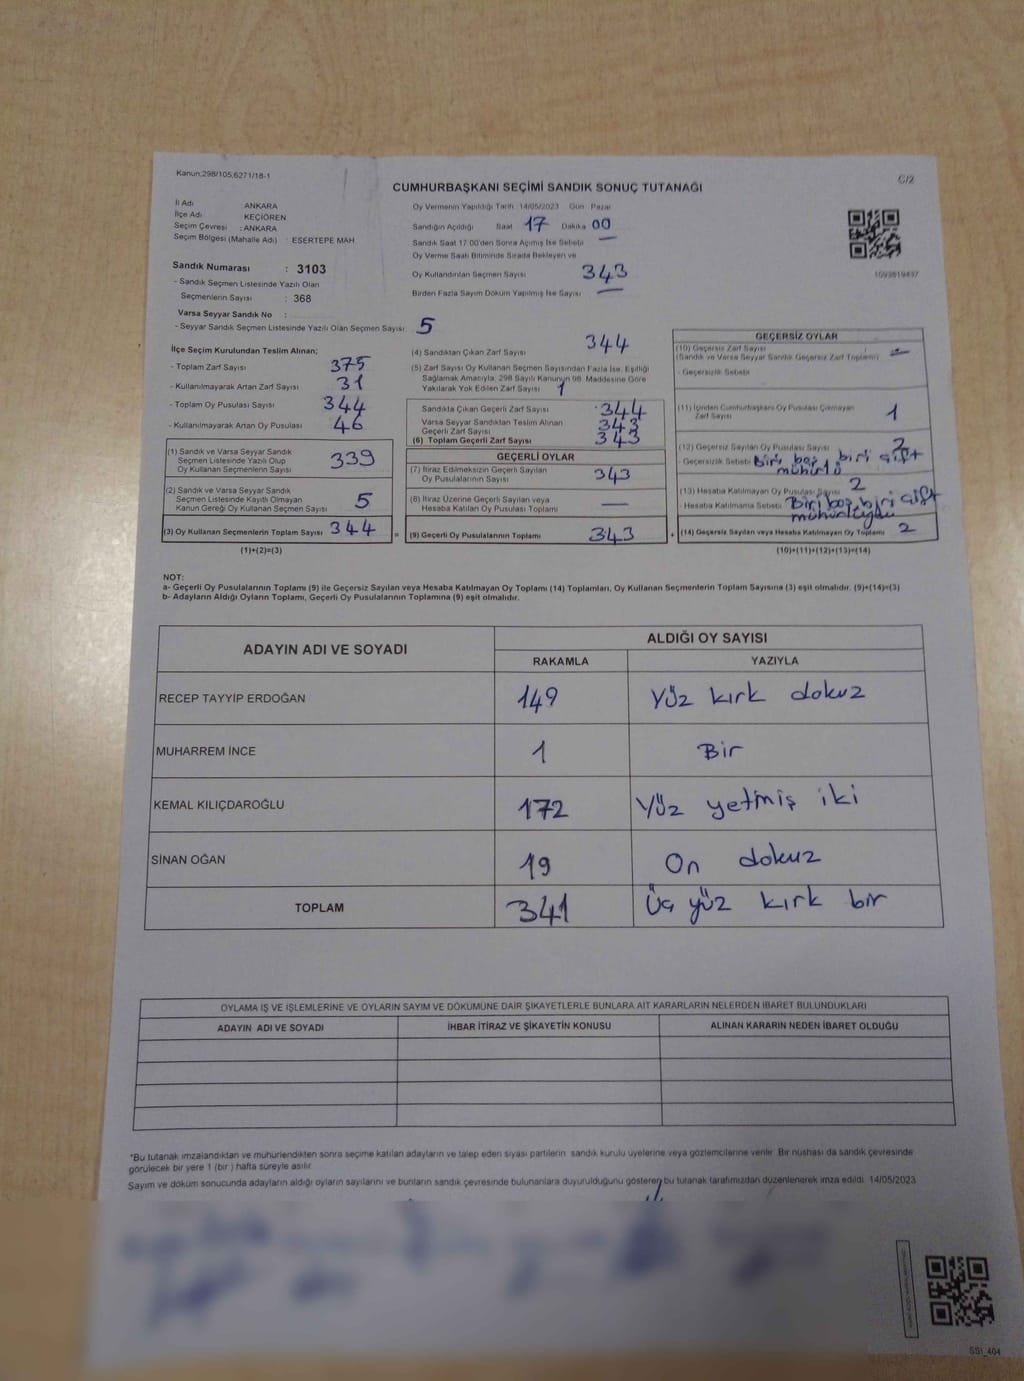 Kanun,298/105,6271/18-1
C/2
CUMHURBAŞKANI SEÇİMİ SANDIK SONUÇ TUTANAĞI
İl Adı ANKARA
İlçe Adı KEÇİÖREN
Seçim Çevresi : ANKARA
Seçim Bölgesi (Mahalle Adı) : ESERTEPE MAH
Sandık Numarası : 3103
- Sandık Seçmen Listesinde Yazılı Olan
Seçmenlerin Sayısı : 368
Varsa Seyyar Sandık No :
- Seyyar Sandık Seçmen Listesinde Yazılı Olan Seçmen Sayısı 5
Oy Vermenin Yapıldığı Tarih 14/05/2023 Gün Pazar
Sandığın Açıldığı Saat 17 Dakika 00
Sandık Saat 17:00'den Sonra Açılmış İse Sebebi —
Oy Verme Saati Bitiminde Sırada Bekleyen ve
Oy Kullandırılan Seçmen Sayısı 343
Birden Fazla Sayım Döküm Yapılmış İse Sayısı —
1093819437
İlçe Seçim Kurulundan Teslim Alınan;
- Toplam Zarf Sayısı 375
- Kullanılmayarak Artan Zarf Sayısı 31
- Toplam Oy Pusulası Sayısı 344
- Kullanılmayarak Artan Oy Pusulası 46
(1) Sandık ve Varsa Seyyar Sandık
Seçmen Listesinde Yazılı Olup
Oy Kullanan Seçmenlerin Sayısı 339
(2) Sandık ve Varsa Seyyar Sandık
Seçmen Listesinde Kayıtlı Olmayan
Kanun Gereği Oy Kullanan Seçmen Sayısı 5
(3) Oy Kullanan Seçmenlerin Toplam Sayısı 344
(1)+(2)=(3)
(4) Sandıktan Çıkan Zarf Sayısı 344
(5) Zarf Sayısı Oy Kullanan Seçmen Sayısından Fazla İse, Eşitliği
Sağlamak Amacıyla, 298 Sayılı Kanunun 98. Maddesine Göre
Yakılarak Yok Edilen Zarf Sayısı 1
Sandıkta Çıkan Geçerli Zarf Sayısı 344
Varsa Seyyar Sandıktan Teslim Alınan
Geçerli Zarf Sayısı 343
(6) Toplam Geçerli Zarf Sayısı 343
GEÇERLİ OYLAR
(7) İtiraz Edilmeksizin Geçerli Sayılan
Oy Pusulalarının Sayısı 343
(8) İtiraz Üzerine Geçerli Sayılan veya
Hesaba Katılan Oy Pusulası Toplamı —
= (9) Geçerli Oy Pusulalarının Toplamı 343 +
GEÇERSİZ OYLAR
(10) Geçersiz Zarf Sayısı —
(Sandık ve Varsa Seyyar Sandık Geçersiz Zarf Toplamı)
- Geçersizlik Sebebi
(11) İçinden Cumhurbaşkanı Oy Pusulası Çıkmayan
Zarf Sayısı 1
(12) Geçersiz Sayılan Oy Pusulası Sayısı 2
- Geçersizlik Sebebi Biri boş biri çift
mühürlü
(13) Hesaba Katılmayan Oy Pusulası Sayısı 2
- Hesaba Katılmama Sebebi Biri boş, biri çift
(14) Geçersiz Sayılan veya Hesaba Katılmayan Oy Toplamı 2
(10)+(11)+(12)+(13)=(14)
NOT:
a- Geçerli Oy Pusulalarının Toplamı (9) ile Geçersiz Sayılan veya Hesaba Katılmayan Oy Toplamı (14) Toplamları, Oy Kullanan Seçmenlerin Toplam Sayısına (3) eşit olmalıdır. (9)+(14)=(3)
b- Adayların Aldığı Oyların Toplamı, Geçerli Oy Pusulalarının Toplamına (9) eşit olmalıdır.
ADAYIN ADI VE SOYADI ALDIĞI OY SAYISI
RAKAMLA YAZIYLA
RECEP TAYYİP ERDOĞAN 149 Yüz kırk dokuz
MUHARREM İNCE 1 Bir
KEMAL KILIÇDAROĞLU 172 Yüz yetmiş iki
SİNAN OĞAN 19 On dokuz
TOPLAM 341 Üç yüz kırk bir
OYLAMA İŞ VE İŞLEMLERİNE VE OYLARIN SAYIM VE DÖKÜMÜNE DAİR ŞİKAYETLERLE BUNLARA AİT KARARLARIN NELERDEN İBARET BULUNDUKLARI
ADAYIN ADI VE SOYADI İHBAR İTİRAZ VE ŞİKAYETİN KONUSU ALINAN KARARIN NEDEN İBARET OLDUĞU
*Bu tutanak imzalandıktan ve mühürlendikten sonra seçime katılan adayların ve talep eden siyasi partilerin sandık kurulu üyelerine veya gözlemcilerine verilir. Bir nüshası da sandık çevresinde
görülecek bir yere 1 (bir ) hafta süreyle asılır.
Sayım ve döküm sonucunda adayların aldığı oyların sayılarını ve bunların sandık çevresinde bulunanlara duyurulduğunu gösteren bu tutanak tarafımızdan düzenlenerek imza edildi. 14/05/2023
SSI_404